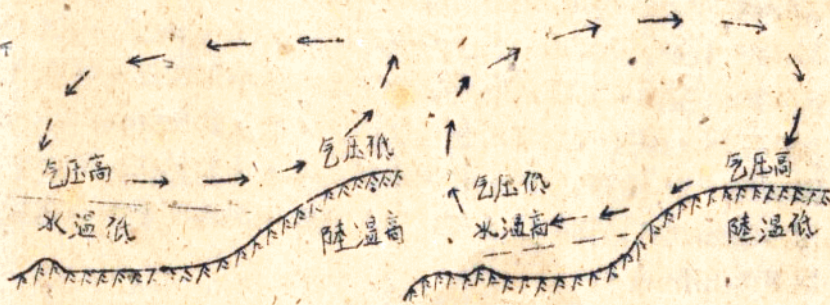 气压高
气压低
水温低
陆温高
气压低
气压高
水温高
陆温低